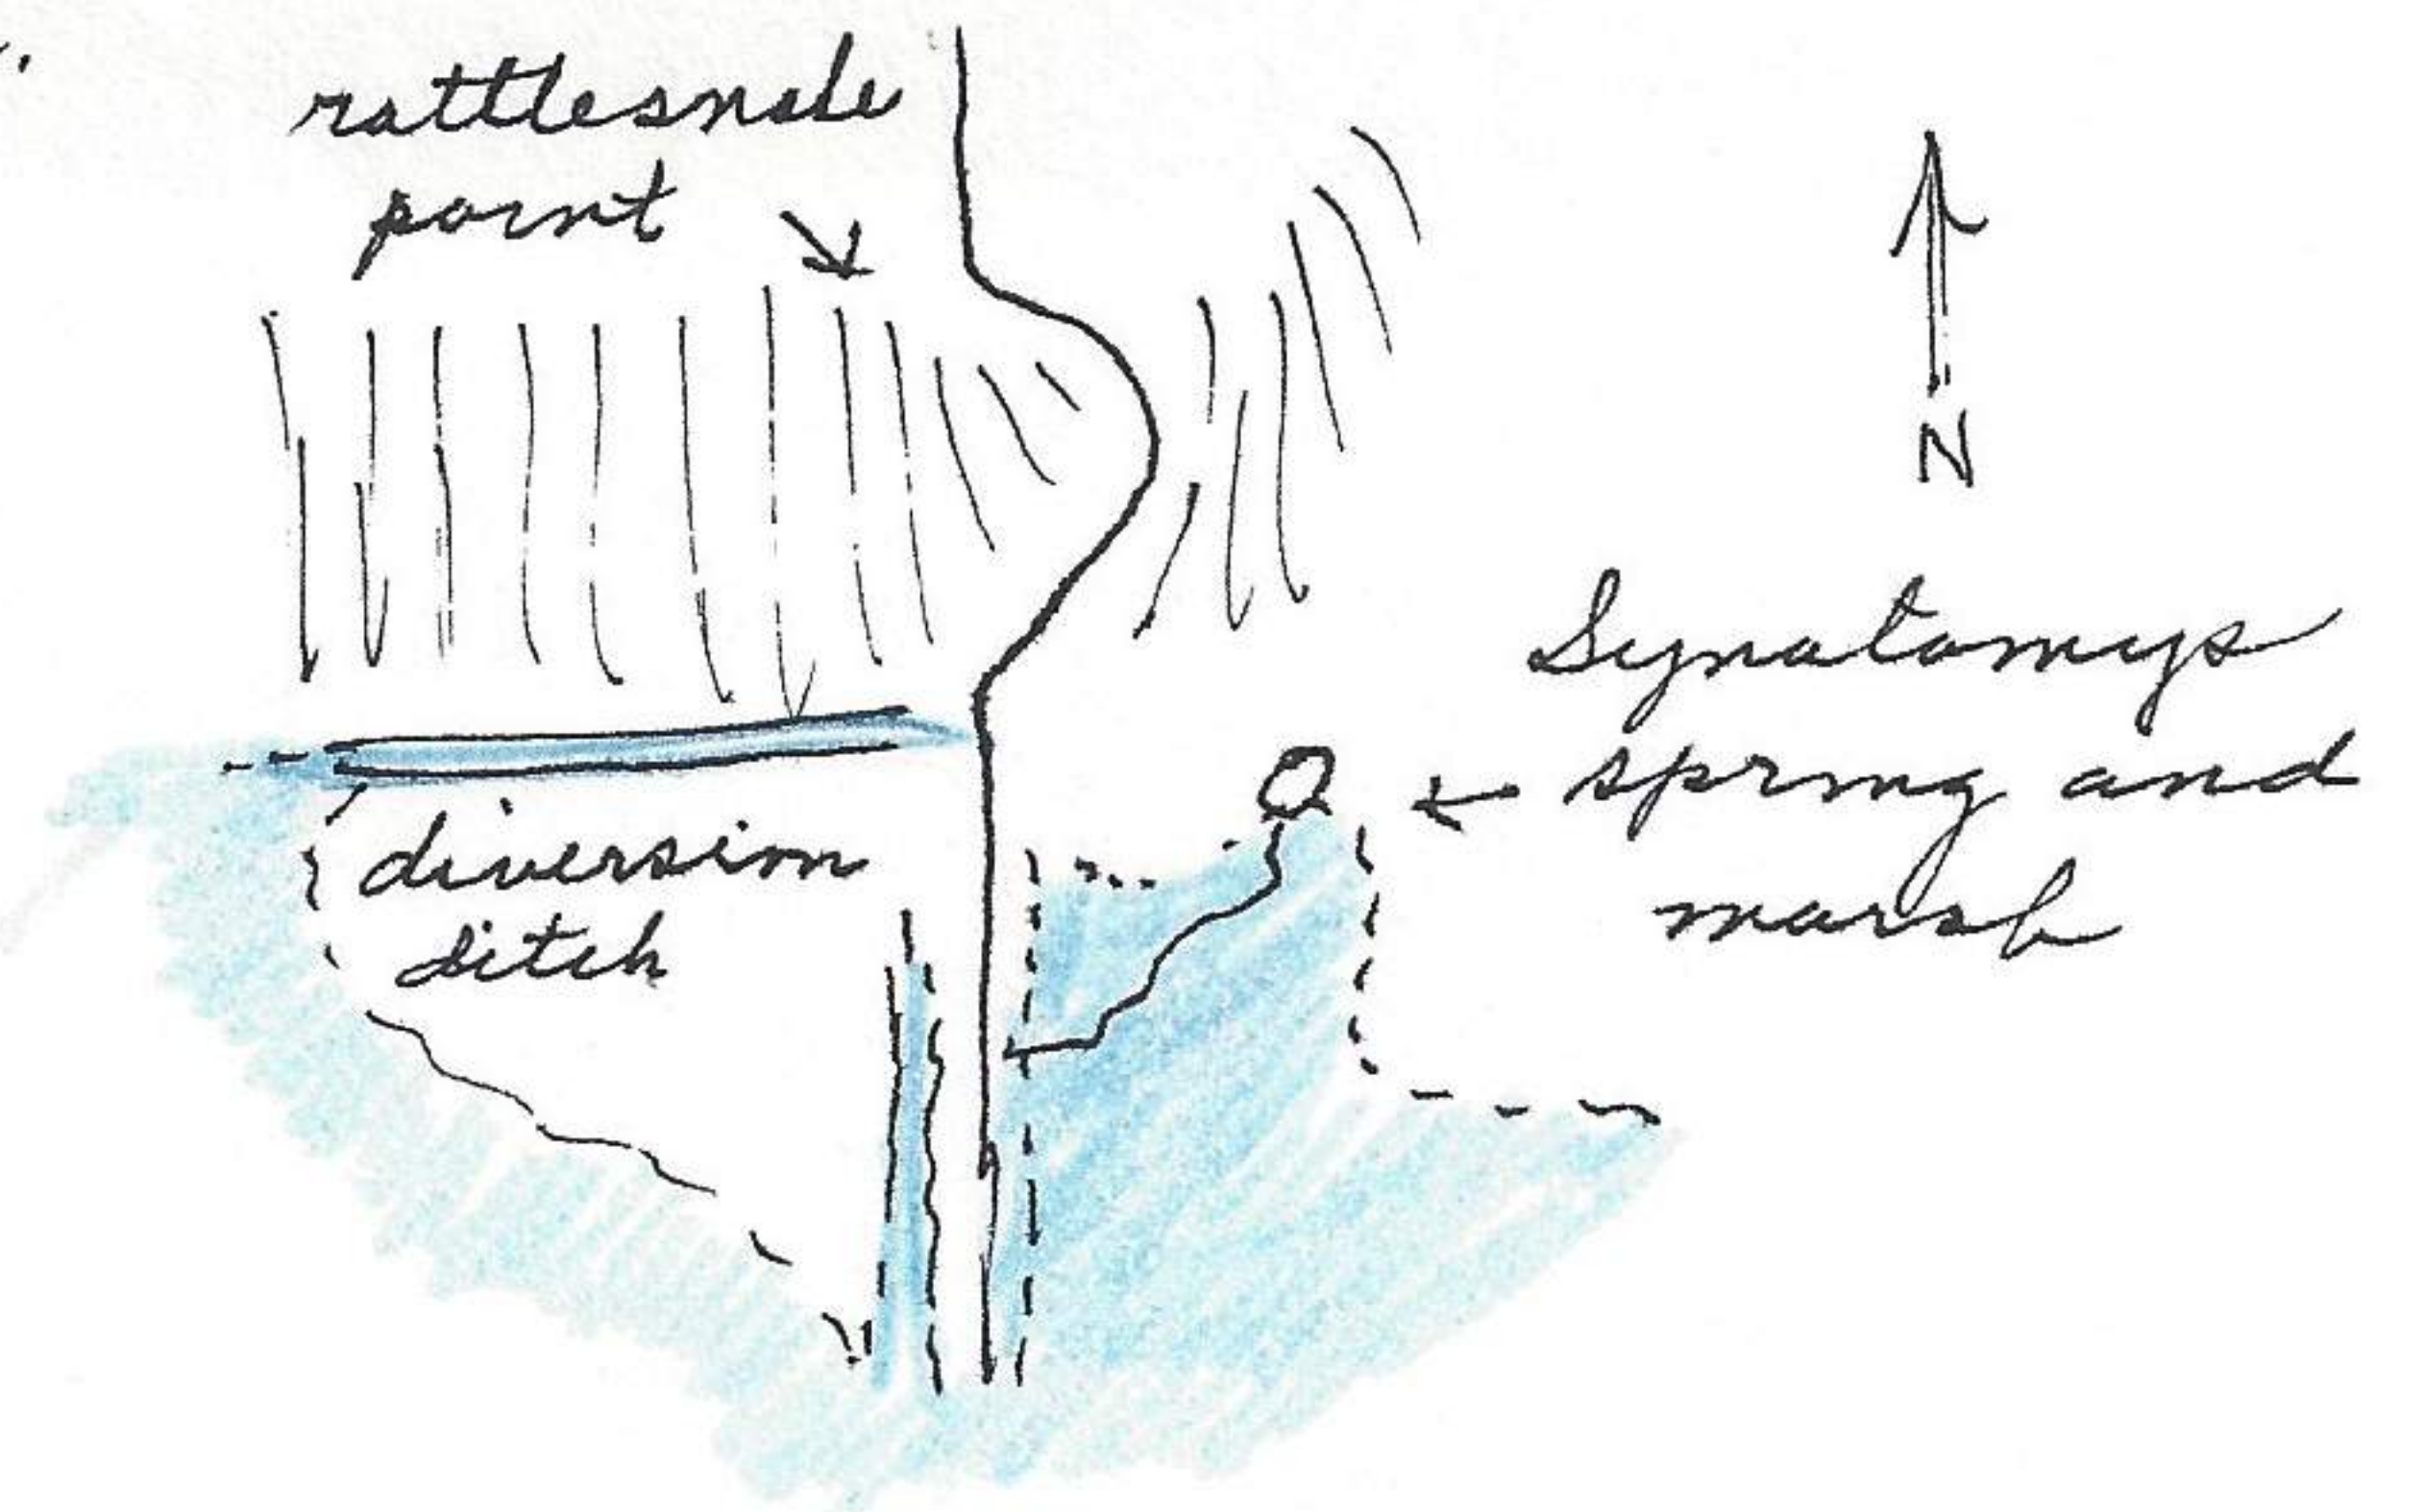 rattlesnake
point
N
Synatomys
spring and
marsh
diversion
ditch